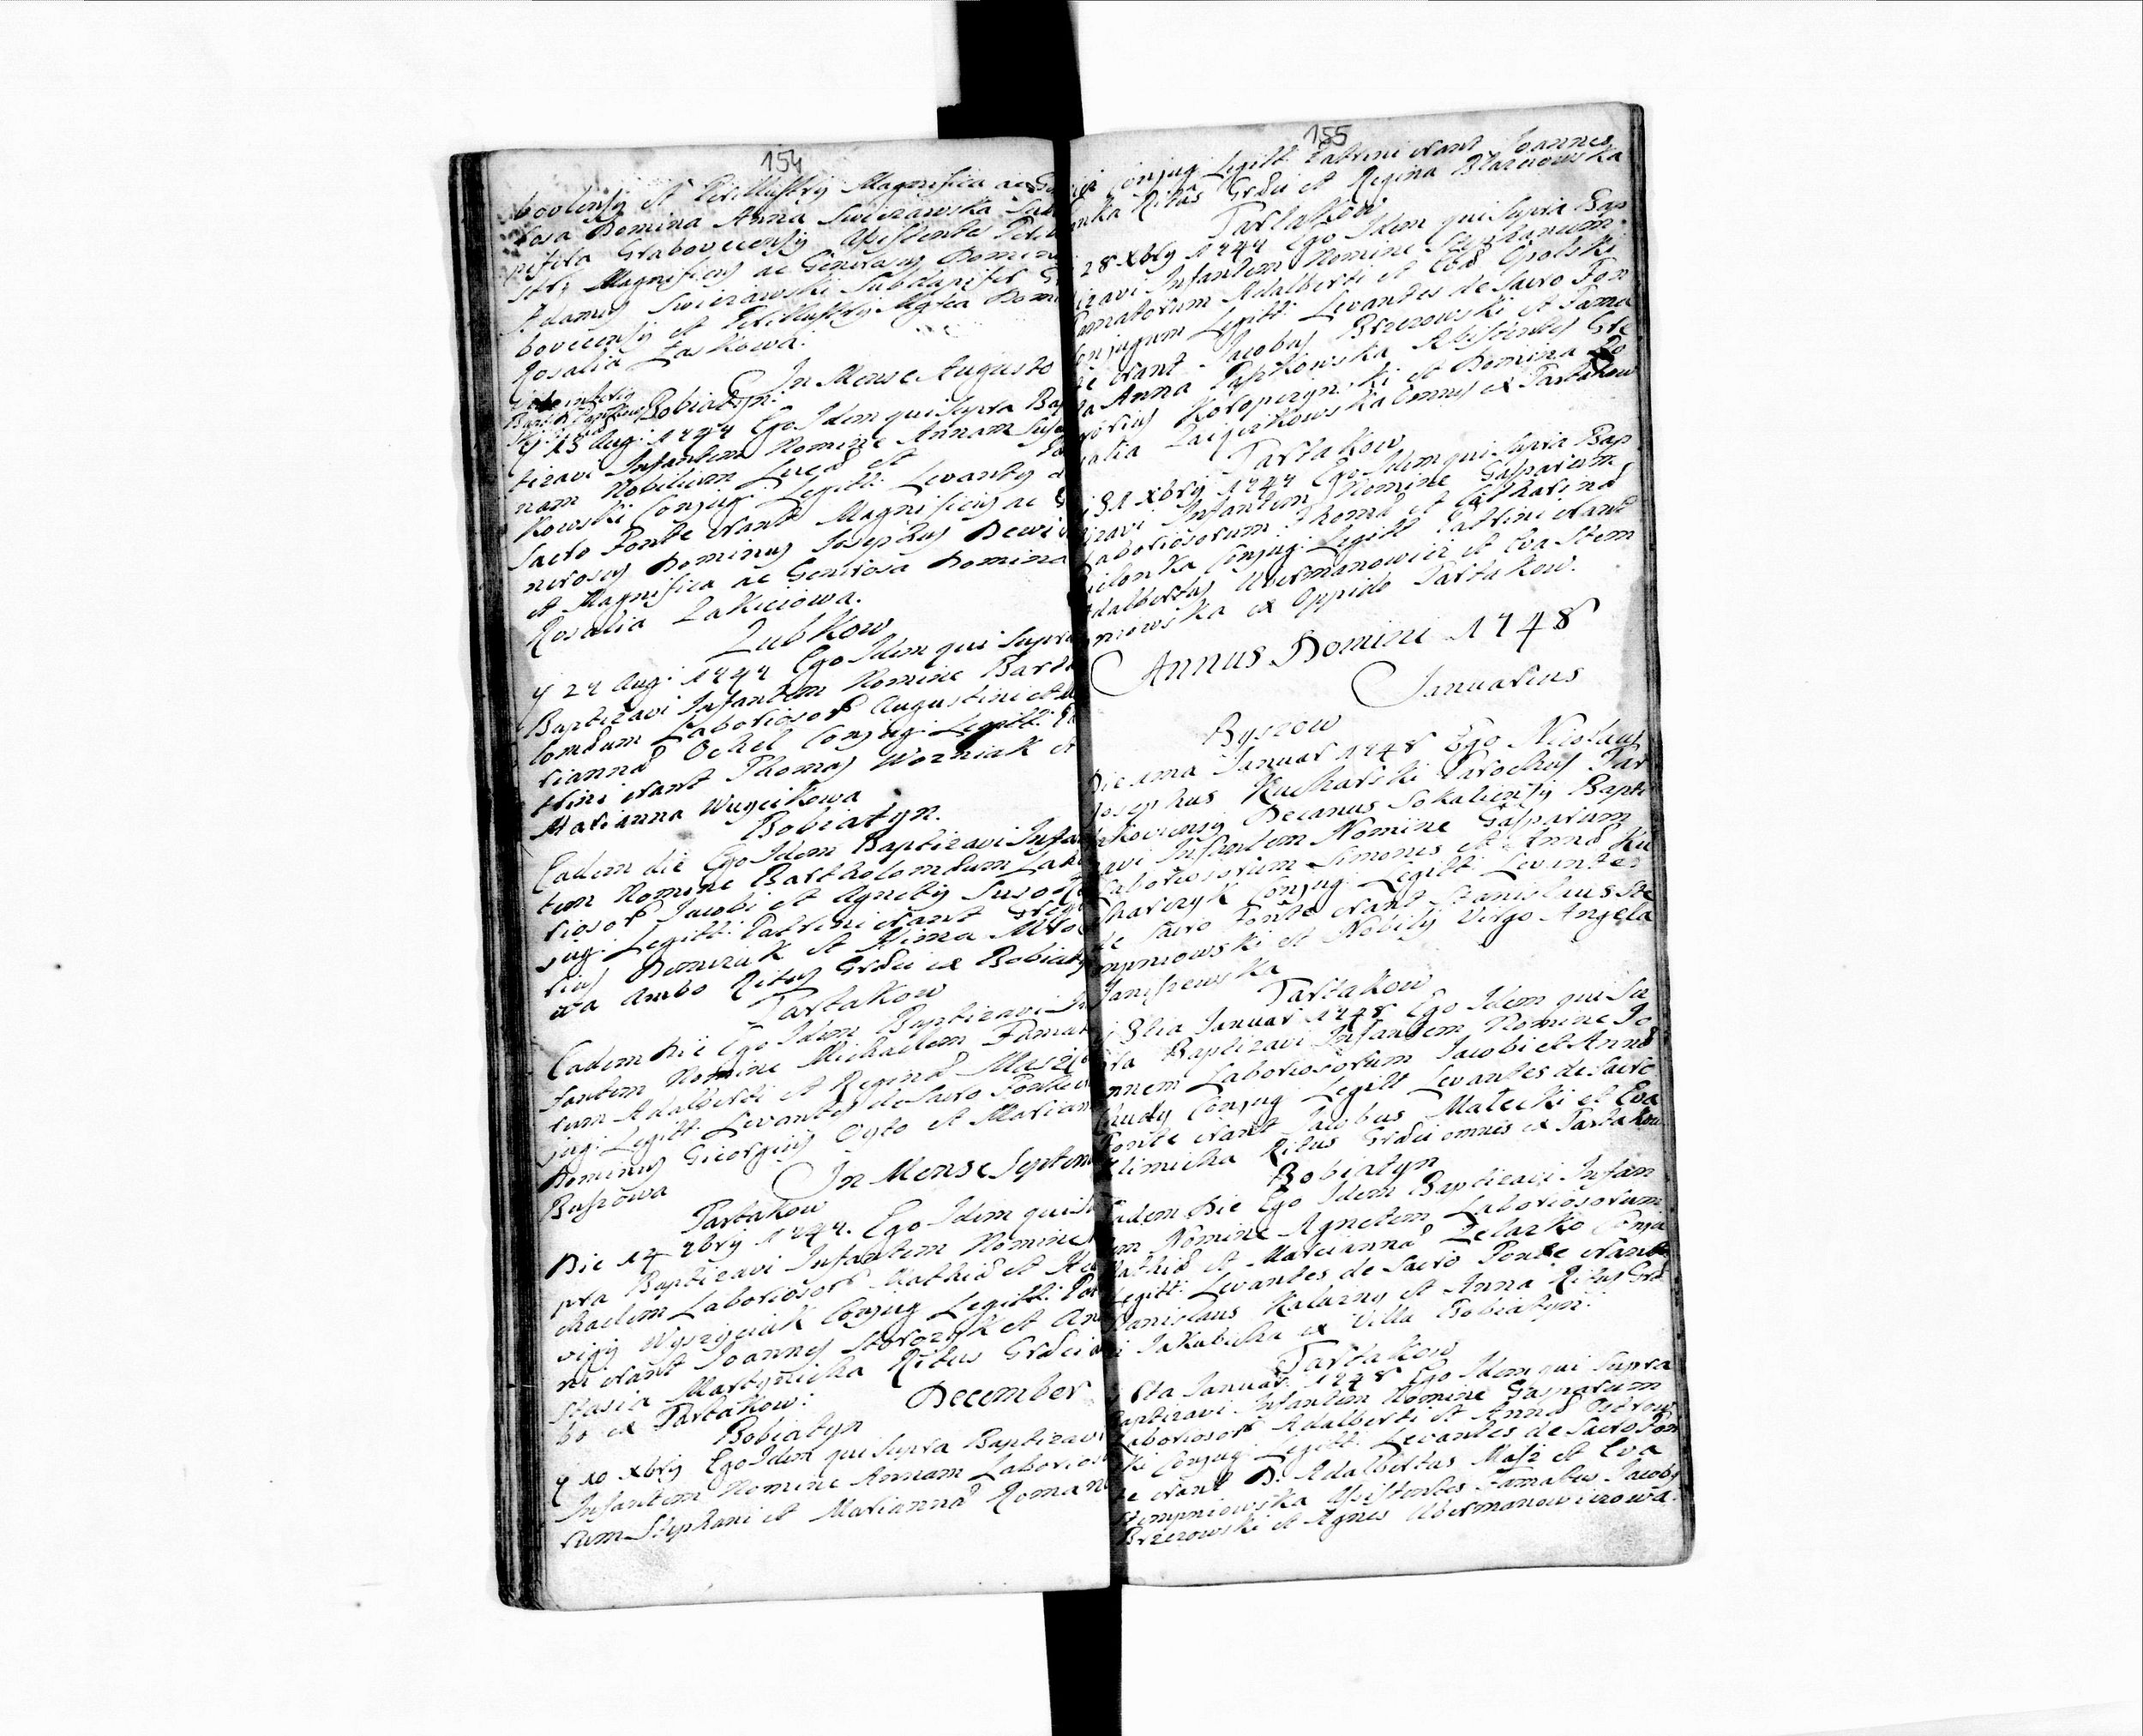 154
bovlensy et Perillustry Magnifica ac Ge
rosa Domina Anna Swierawska Sub
pifera Grabovecensy Assistente Peril
stry Magnificus ac Generosus Dominus
Adamus Swierawski Subdapifer Gr
bovecensy et Perillustry Mgca Domi
Rosalia Zaskowa.
In Mense Augusto
Bobiatyn:
y 15 Aug: 1747 Ego Idem qui Supra Bap
tizavi Infantem Nomine Annam
nam Nobilium Lucæ et
kowski Conjug: Legitt: Levantes d
Sacro Fonte erant Magnificus ac G
nerosus Dominus Josephus Dewi
et Magnifica ac Generosa Domina
Rosalia Zakiciowa.
Zubkow
y 27 Aug: 1747 Ego Idem qui Supra
Baptizavi Infantem Nomine Bart
lomæum Laboriosor Augustini et M
riannæ Ochel Conjug: Legitt: P
trini erant Thomas Wozniak et
Marianna Wuycikowa
Bobiatyn.
Eadem die Ego Idem Baptizavi Infan
tem Nomine Bartholomæum Labo
riosor Jacobi et Agnetis
jug: Legitt: Patrini erant Grego
rius Demczuk et Mro
wa Ambo Ritus Græci ex Bobiaty
Tartakow
Eadem Die Ego Idem Baptizavi In
fantem Nomine Michaelem Famat
rum Adalberti et Reginæ
jug: Legitt: Levantes de Sacro Fonte e
Dominus Georgius Oyto et Mariann
Buszowa
In Mense Septem
Tartakow
Die 14 7bris 1747. Ego Idem qui Su
pra Baptizavi Infantem Nomine
chaelem Laboriosor Mathiæ et He
vigis Conjug Legitt: Pat
ni erant Joannes Storozyk et An
stasia Martynicha Ritus Græci a
bo ex Tartakow:
December
Bobiatyn
y 10 Xbris Ego Idem qui Supra Baptizavi
Infantem Nomine Annam Laborios
rum Stephani et Mariannæ Roman
155
Conjug: Legitt: Patrini erant Joannes
Ritus Græci et Regina
Tartakow
28 Xbris 1747 Ego Idem qui Supra Bap
tizavi Infantem Nomine Stephanum
Famatorum Adalberti et Evæ Opolski
Conjugum Legitt: Levantes de Sacro Fon
te erant Jacobus Brzezowski et Fama
ta Anna Paszkowska Assistentes Gre
gorius Koropczynski et Domina Ro
salia omnes ex Tartakow
Tartakow
31 Xbris 1747 Ego Idem qui Supra Bap
tizavi Infantem Nomine Gasparum
Laboriosorum Thomæ et Catharinæ
Conjug: Legitt Patrini erant
Adalbertus Ubermanowicz et Eva Stem
pniowska ex Oppido Tartakow.
Annus Domini 1748
Januarius
Byszow
Die 1ma Januar 1748 Ego Nicolaus
Josephus Kucharski Parochus Tar
takoviensis Decanus Sokaliensis Bapti
zavi Infantem Nomine Gasparum
Laboriosorum Simonis et Annæ Ku
charczyk Conjug: Legitt: Levantes
de Sacro Fonte erant Stanislaus Ste
mpniowski et Nobilis Virgo Angela
Janiszewska
Tartakow
3tia Januar 1748 Ego Idem qui Su
pra Baptizavi Infantem Nomine Jo
annem Laboriosorum Jacobi et Annæ
Chudy Conjug: Legitt Levantes de Sacro
Fonte erant Jacobus Małecki et Eva
Klimicha Ritus Græci omnes ex Tartakow
Bobiatyn
Eadem Die Ego Idem Baptizavi Infan
tem Nomine Agnetem Laboriosorum
Mathiæ et Mariannæ Zelazko Conju
Legitt: Levantes de Sacro Fonte erant
Stanislaus Kalazny et Anna Ritus Græ
ci Jakubicha ex Villa Bobiatyn:
Tartakow
6ta Januar: 1748 Ego Idem qui Supra
Baptizavi Infantem Nomine Gasparum
Laboriosor Adalberti et Annæ Ostrow
ski Conjug: Legitt: Levantes de Sacro Fon
te erant D: Adalbertus Masz et Eva
Stempniowska Assistentes Famatus Jacobus
Brzezowski et Agnes Ubermanowiczowa.